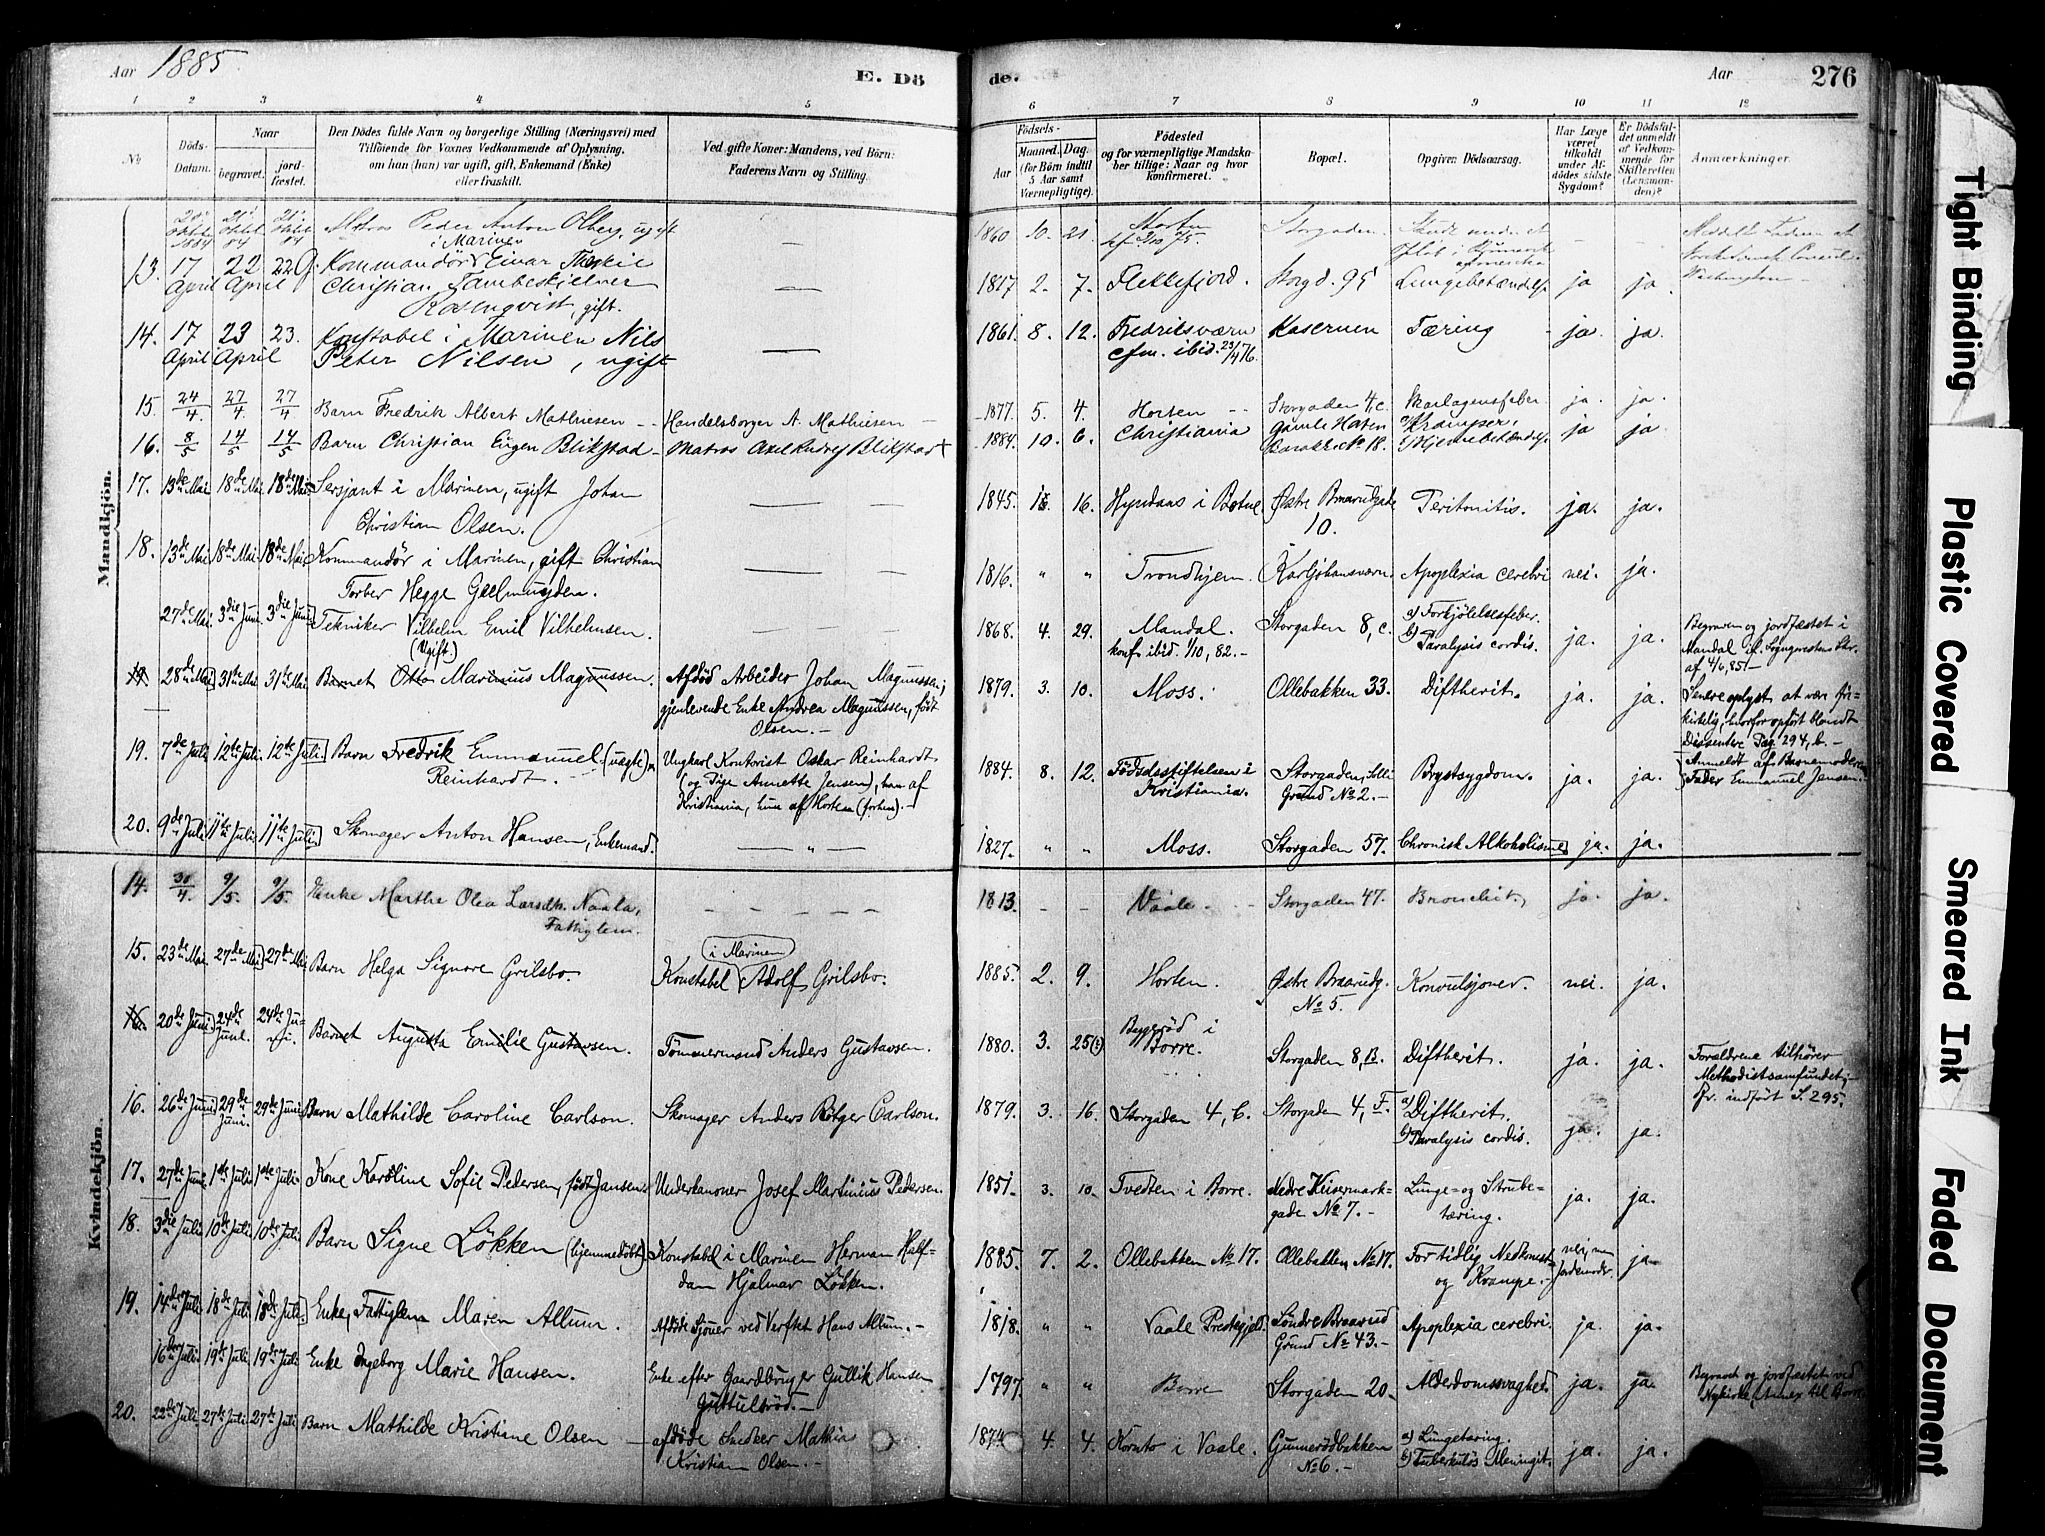 Aar 1885
E. Dö
de.
Aar
276
1 2 3 4 5 6 7 8 9 10 11 12
No
Döds-
Datum.
Naar
begravet.
jord-
fæstet.
Den Dödes fulde Navn og borgerlige Stilling (Næringsvei) med
Tilföiende for Voxnes Vedkommende af Oplysning,
om han (hun) var ugift, gift, Enkemand (Enke)
eller fraskilt.
Ved gifte Koner: Mandens, ved Börn:
Faderens Navn og Stilling.
Födsels-
Aar
Maaned. Dag.
(for Börn indtil
5 Aar samt
Værnepligtige).
Födested
og for værnepligtige Mandska-
ber tillige: Naar og hvor
konfirmeret.
Bopæl.
Opgiven Dödsaarsag.
Har Læge
været
tilkaldt
under Af-
dödes sidste
Sygdom?
Er Dödsfal-
det anmeldt
af Vedkom-
mende for
Skifteretten
(Lensman-
den)?
Anmærkninger.
Mandkjön.
1884 Matros Peder Anton Olberg, ugift — 1860 21 Horten Storgaden
13. 17 April 22 April 22 Kommandör i Marinen Einar
Christian Tambeskjelver
Rosenqvist, gift. — 1817 2. 7. Flekkefjord. Storgd. 95 Lungebetændelse ja ja.
14. 17 April 23 April 23. Konstabel i Marinen Nils
Peter Nilsen, ugift — 1861. 8. 12. Fredriksværn Kasernen Tæring ja. ja.
cfm. ibid. 23/4 76.
15. 24/4 27/4 27/4 Barn Fredrik Albert Mathiesen Handelsborger A. Mathiesen 1877. 5. 4. Horten Storgaden 4, c. Skarlagensfeber ja. ja.
16. 8/5 14/5 14/5 Barn Christian Eugen Blikstad Matros Axel Blikstad 1884. 10. 6. Christiania Gamle Horten
Barakke No 18. Krampe ja ja
17. 13de Mai 18de Mai 18de Mai Sersjant i Marinen, ugift Johan
Christian Olsen. 1845. 16. Östre Braarudgade
10. Peritonitis. ja. ja.
18. 13de Mai 18de Mai 18de Mai Kommandör i Marinen, gift Christian
Torber Hegge Geelmuyden. 1816. " " Trondhjem. Karljohansværn. Apoplexia cerebri nei. ja.
27de Mai 3die Juni 3die Juni Tekniker Vilhelm Emil Vilhelmsen.
(Ugift.) 1868. 4. 29. Mandal.
konf. ibid. 1/10, 82. Storgaden 8, c. a) Forkjölelsesfeber.
b) Paralysis cordis. ja. ja. Begraven og jordfæstet i
Mandal if. Sogneprestens Skr.
af 4/6, 85.
19. 28de Mai 31te Mai 31te Mai Barnet Otto Marinius Magnussen. Afdöd Arbeider Johan Magnussen;
gjenlevende Enke Andrea Magnussen, född
Olsen. 1879. 3. 10. Moss. Ollebakken 33. Diftherit. ja. ja. Senere oplyst at være fri-
kirkelig, hvorfor opfört blandt
Dissentere Pag. 294, b.
19. 7de Juli 12te Juli 12te Juli Barn Fredrik Emmanuel (uægte)
Reinhardt. Ungkarl Kontorist Oskar Reinhardt
(og Pige Annette Jensen), han af
Kristiania, hun af Horten (forhen). 1884. 8. 12. Födselsstiftelsen i
Kristiania. Storgaden,
Grund No 2. Brystsygdom. ja. ja. Anmeldt af Barnemoderens
Fader Emmanuel Jensen.
20. 9de Juli 11te Juli 11te Juli Skomager Anton Hansen, Enkemand. " 1827. " " Moss. Storgaden 57. Chronisk Alkoholisme ja. ja.
Kvindekjön.
14. 30/4 9/5. 9/5. Enke Marthe Olea Larsdtr.
Fattiglem. 1813. Vaale. Storgaden 47. Bronchit, ja. ja.
15. 23de Mai 27de Mai 27de Mai Barn Helga Signore Grilsbo. Konstabel i Marinen Adolf Grilsbo. 1885. 2. 9. Horten. Östre Braarudg.
No 5. Konvulsjoner. nei. ja.
16. 20de Juni 24de Juni 24de Juni. Barnet Augusta Emilie Gustavsen. Tömmermand Anders Gustavsen. 1880. 3. 25(?) i
Borre. Storgaden 8, B. Diftherit. ja. ja. Forældrene tilhörer
Methodistsamfundet;
Jfr. indfört S. 295.
16. 26de Juni 29de Juni. 29de Juni Barn Mathilde Caroline Carlson. Skomager Anders Rötger Carlson. 1879. 3. 16. Storgaden 4, C. Storgaden 4, F. a) Diftherit.
b) Paralysis cordis. ja. ja.
17. 27de Juni 1ste Juli 1ste Juli Kone Karoline Sofie Pedersen, född Jansen Underkanoner Josef Martinius Pedersen. 1851. 3. 10. Tvedten i Borre. Nedre Keisermark-
gade No 7. Lunge- og Strube-
tæring. ja. ja.
18. 3die Juli 10de Juli 10de Juli Barn Signe Lökken (hjemmedöbt) Konstabel i Marinen Herman Half-
dam Hjalmar Lökken. 1885. 7. 2. Ollebakken No 17. Ollebakken No 17. For tidlig Nedkomst
og Krampe. nei, men
Jordemoder. ja.
19. 14de Juli 18de Juli 18de Juli. Enke, Fattiglem Maren Allum. Afdöde Sjöuer ved Verftet Hans Allum. 1818. " " Vaale Prestegjeld. Söndre Braarud
Grund No 43. Apoplexia cerebri. ja. ja.
16de Juli 19de Juli 19de Juli Enke Ingeborg Marie Hansen. Enke efter Gaardbruger Gullik Hansen
1797. " " Borre Storgaden 20. Alderdomssvaghed. ja. ja. Begravet og jordfæstet ved
Nykirke, Annex til Borre.
20. 22de Juli 27de Juli 27de Juli Barn Mathilde Kristiane Olsen afdöde Snedker Mathia
Kristian Olsen. 1874 4. 4. i Vaale. Gunnerödbakken
No 6. a) Lungetæring.
b) Tuberkulös Meningit. ja. ja.
Tight Binding
Plastic Covered
Smeared Ink
Faded Document